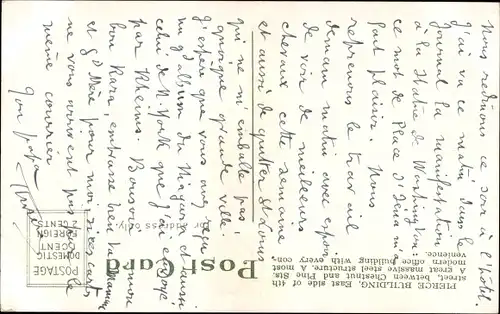 Nous redînons ce soir à l'hôtel.
J'ai vu ce matin dans le
journal la manifestation
à la statue de Washington
ce mot de Place d'Iéna m'a
fait plaisir. Nous
reprenons le travail
demain matin avec espoir
de voir de meilleurs
chevaux cette semaine
et aussi de quitter St Louis
qui ne m'emballe pas,
quoique grande ville.
J'espère que vous avez reçu
mon album du Niagara et aussi
celui de N. York que j'ai envoyé
par Rheims. Bonsoir
bon Kara, embrasse bien ta maman
et Gd Mère pour moi
ne vous arrivent pas par le
même courrier
Ton papa
PIERCE BUILDING, East side of 4th
street, between Chestnut and Pine Sts.
A great massive steel structure. A most
modern office building with every con-
venience.
Post Card
For address only.
POSTAGE
DOMESTIC
1 CENT
FOREIGN
2 CENTS